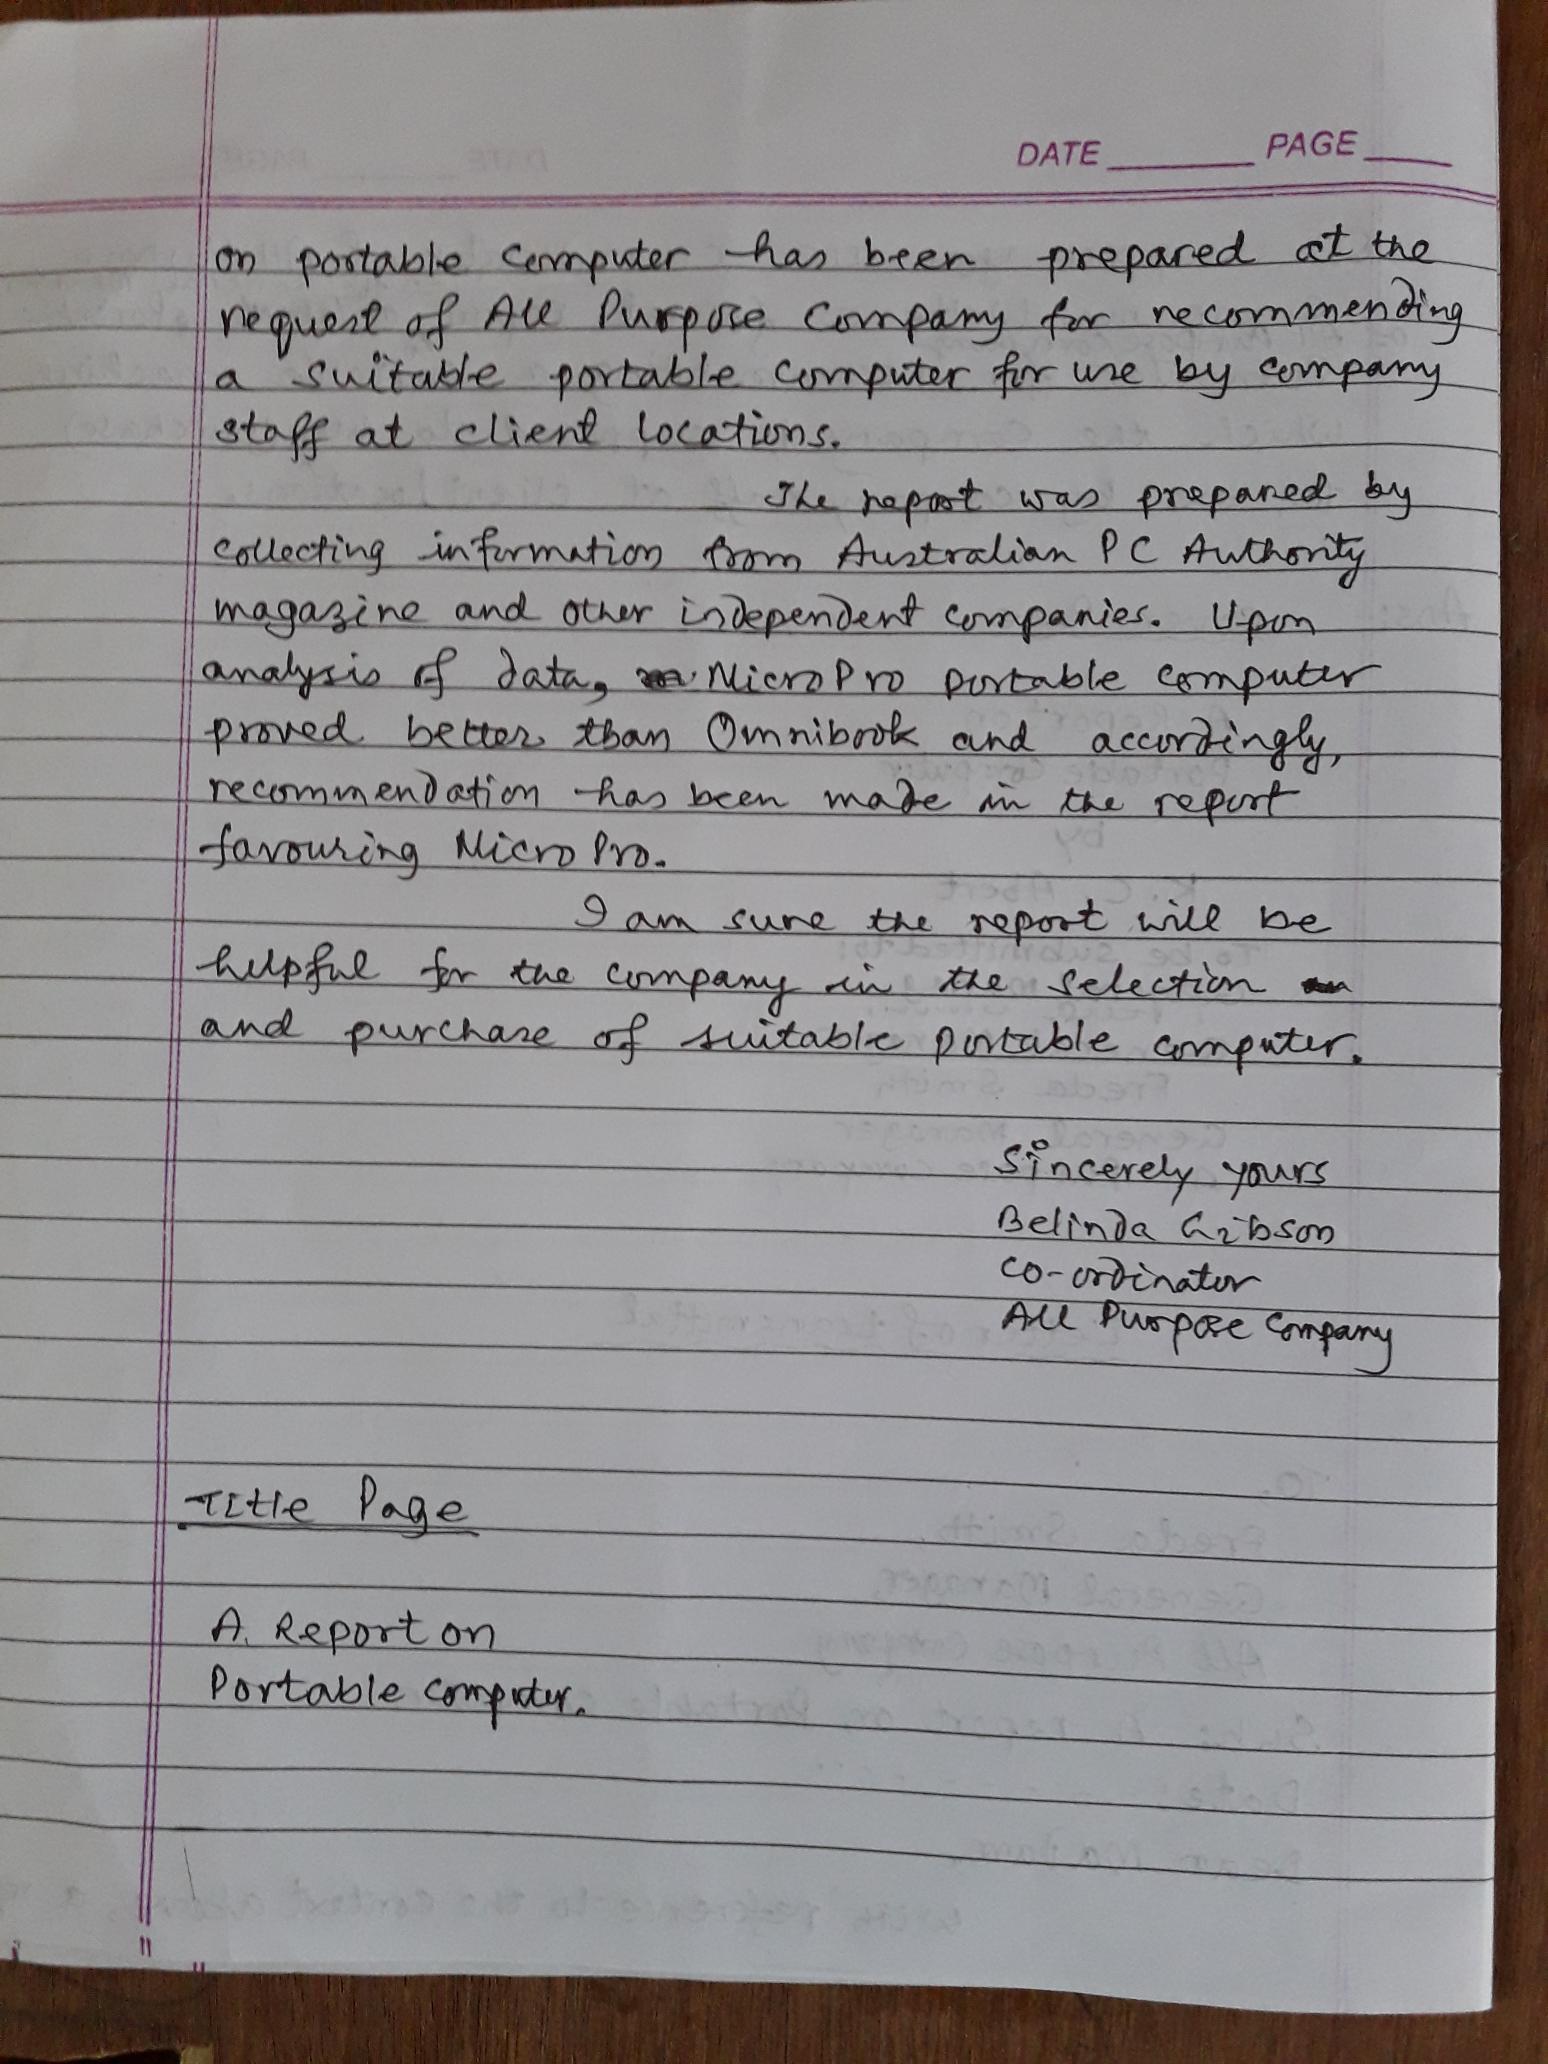 DATE PAGE
on portable computer has been prepared at the
request of All Purpose Company for recommending
a suitable portable computer for use by company
staff at client locations.
The report was prepared by
collecting information from Australian PC Authority
magazine and other independent companies. Upon
analysis of data, MicroPro portable computer
proved better than Omnibook and accordingly,
recommendation has been made in the report
favouring Micro Pro.
I am sure the report will be
helpful for the company in the selection
and purchase of suitable portable computer.
Sincerely yours
Belinda Gibson
Co-ordinator
All Purpose Company
Title Page
A Report on
Portable computer.